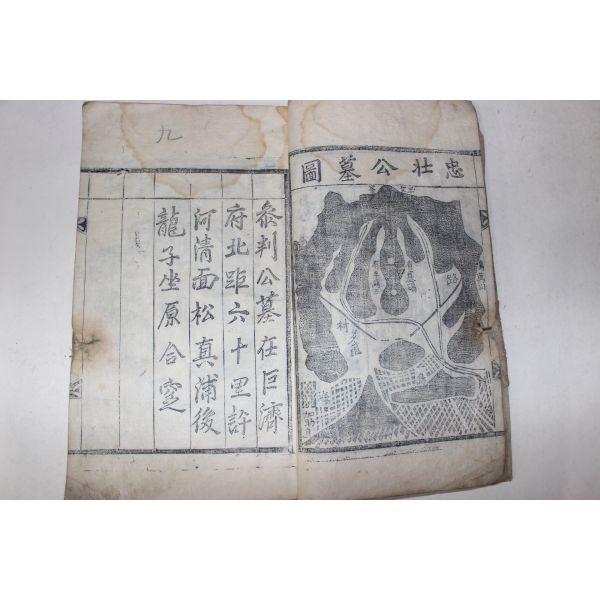 忠壯公墓圖
路
村
九
叅判公墓在巨濟
府北距六十里許
河清面松真浦後
龍子坐原合窆